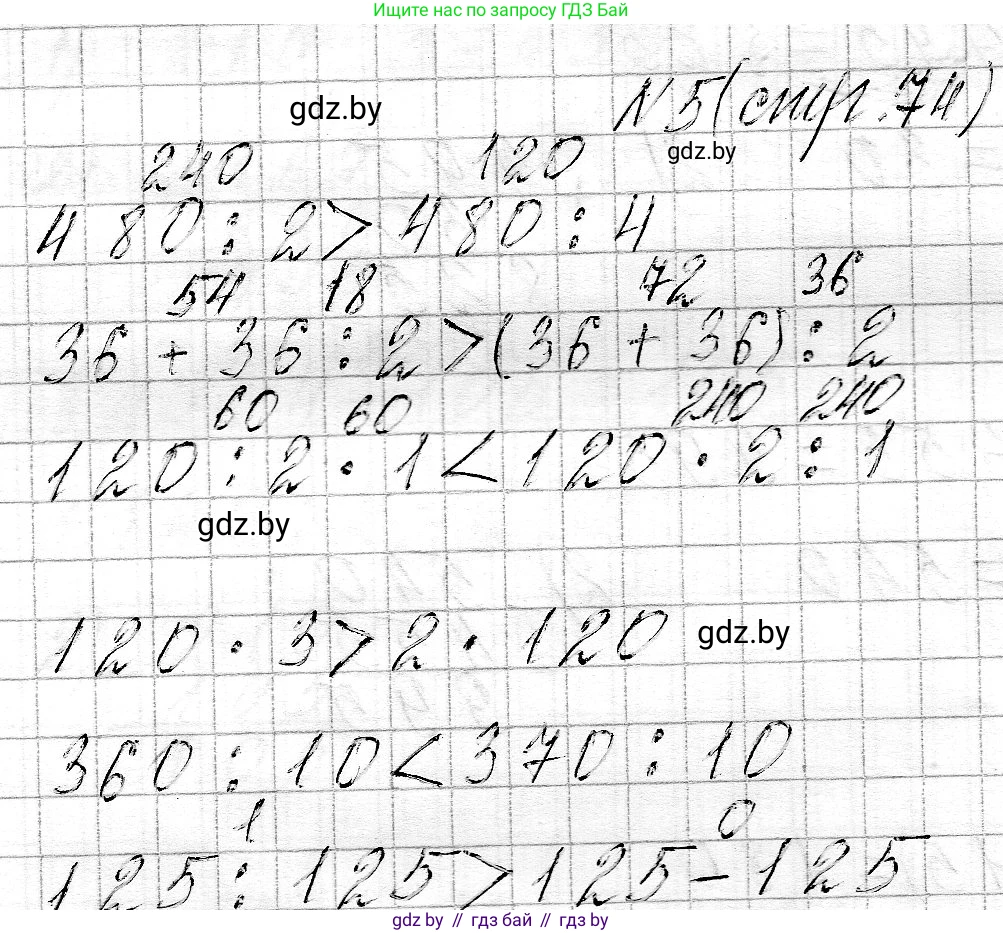 Ищите нас по запросу ГДЗ Бай
gdz.by
№5(стр.74)
gdz.by
240 120
480 : 2 > 480 : 4
54 18 72 36
36 + 36 : 2 > (36 + 36) : 2
60 60 240 240
120 : 2 · 1 < 120 · 2 : 1
gdz.by
120 · 3 > 2 · 120
gdz.by
360 : 10 < 370 : 10
1 0
125 : 125 > 125 - 125
gdz by // гдз бай // гдз by